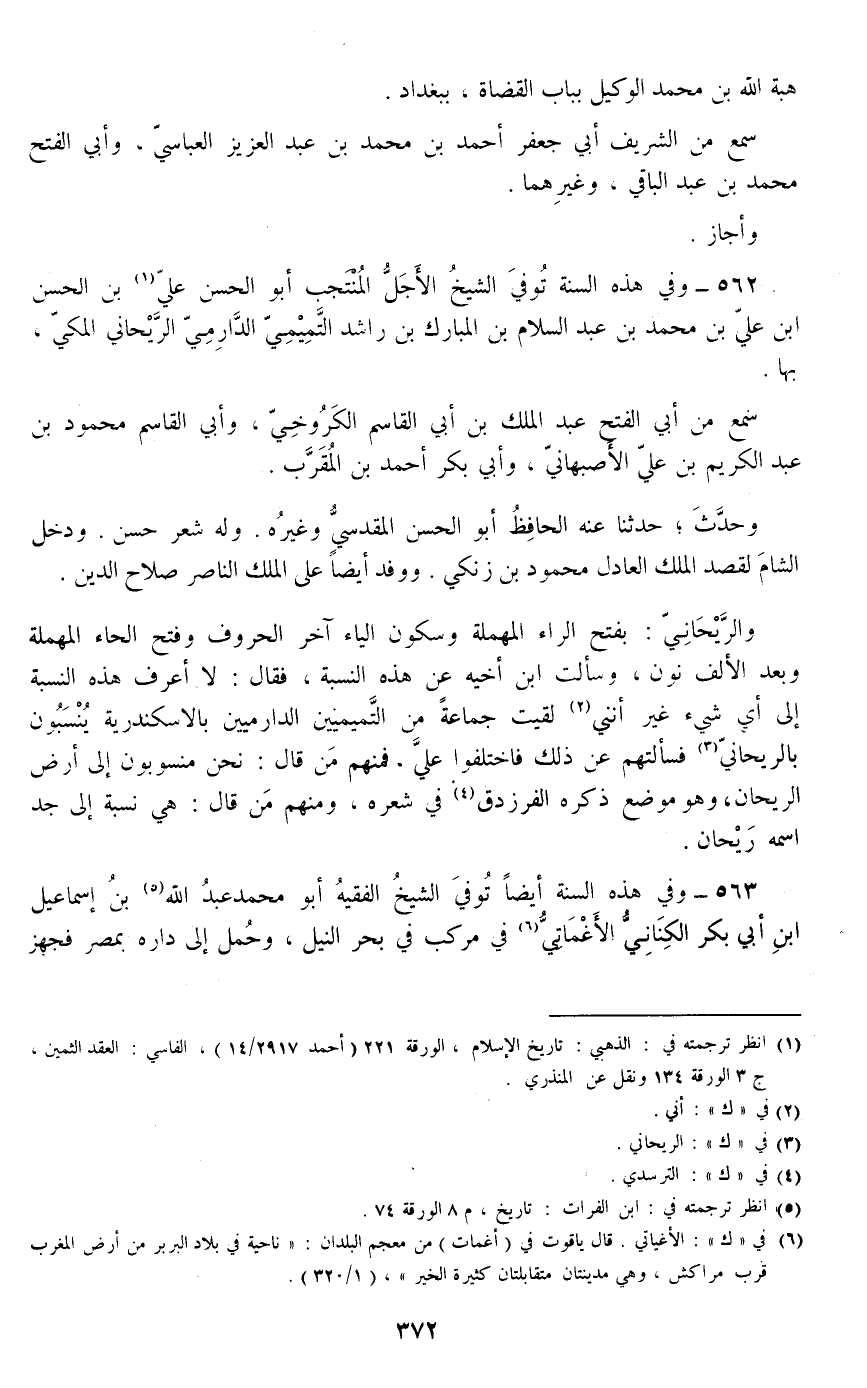 هبة الله بن محمد الوكيل بباب القضاة ، ببغداد .
سمع من الشريف أبي جعفر أحمد بن محمد بن عبد العزيز العباسيّ . وأبي الفتح
محمد بن عبد الباقي ، وغيرِهما .
وأجاز .
٥٦٢ ـ وفي هذه السنة تُوفيَ الشيخُ الأَجَلُّ المُنْتَجب أبو الحسن عليّ(١) بن الحسن
ابن عليّ بن محمد بن عبد السلام بن المبارك بن راشد التَّمِيْمِيّ الدَّارِمِيّ الرَّيْحاني المكيّ ،
بها .
سَمع من أبي الفتح عبد الملك بن أبي القاسم الكَرُوخِيّ ، وأبي القاسم محمود بن
عبد الكريم بن عليّ الأَصبهانيّ ، وأبي بكر أحمد بن المُقَرَّب .
وحدَّثَ ؛ حدثنا عنه الحافِظُ أبو الحسن المقدسيُّ وغيرُه . وله شعر حسن . ودخل
الشامَ لقصد الملك العادل محمود بن زنكي . ووفد أيضاً على الملك الناصر صلاح الدين .
والرَّيْحَانِيّ : بفتح الراء المهملة وسكون الياء آخر الحروف وفتح الحاء المهملة
وبعد الألف نون ، وسألت ابن أخيه عن هذه النسبة ، فقال : لا أعرف هذه النسبة
إلى أي شيء غير أنني(٢) لقيت جماعةً من التَّميميَن الدارميين بالاسكندرية يُنْسَبُون
بالريحانيّ(٣) فسألتهم عن ذلك فاختلفوا عليَّ . فمنهم مَن قال : نحن منسوبون إلى أرض
الريحان، وهو موضع ذكره الفرزدق(٤) في شعره ، ومنهم مَن قال : هي نسبة إلى جد
اسمه رَيْحان .
٥٦٣ ـ وفي هذه السنة أيضاً تُوفيَ الشيخُ الفقيهُ أبو محمدعبدُ الله(٥) بنُ إسماعيل
ابنِ أبي بكر الكِنَانِيُّ الأَغْمَاتِيُّ(٦) في مركب في بحر النيل ، وحُمل إلى داره بمصر فجهز
(١) انظر ترجمته في : الذهبي : تاريخ الإسلام ، الورقة ٢٢١ ( أحمد ١٤/٢٩١٧ ) ، الفاسي : العقد الثمين ،
ج ٣ الورقة ١٣٤ ونقل عن المنذري .
(٢) في « ك » : أني .
(٣) في « ك » : الريحاني .
(٤) في « ك » : الترسدي .
(٥) انظر ترجمته في : ابن الفرات : تاريخ ، م ٨ الورقة ٧٤ .
(٦) في « ك » : الأغياني . قال ياقوت في ( أغمات ) من معجم البلدان : « ناحية في بلاد البربر من أرض المغرب
قرب مراكش ، وهي مدينتان متقابلتان كثيرة الخير » ، ( ٣٢٠/١ ) .
٣٧٢